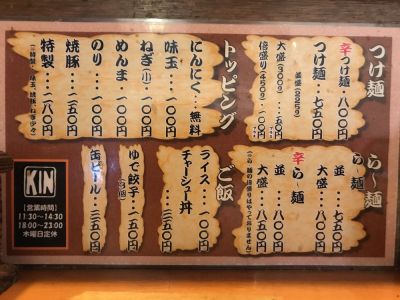 つけ麺
つけ麺・・・七五〇円
辛つけ麺 八〇〇円
並盛(225g)
大盛(300g)・・五〇円
倍盛り(450g)一〇〇円
ら〜麺
ら〜麺
並・・・七五〇円
大盛・・八五〇円
辛ら〜麺
並・・・八〇〇円
大盛・・八五〇円
トッピング
にんにく・・無料
味玉・・・一〇〇円
ねぎ(小)・一〇〇円
めんま・・一〇〇円
のり・・・一〇〇円
焼豚・・・二五〇円
特製・・・二八〇円
ご飯
ライス・・・一〇〇円
チャーシュー丼
三五〇円
ゆで餃子・・二五〇円
缶ビール・・三五〇円
KIN
【営業時間】
11:30〜14:30
18:00〜23:00
水曜日定休